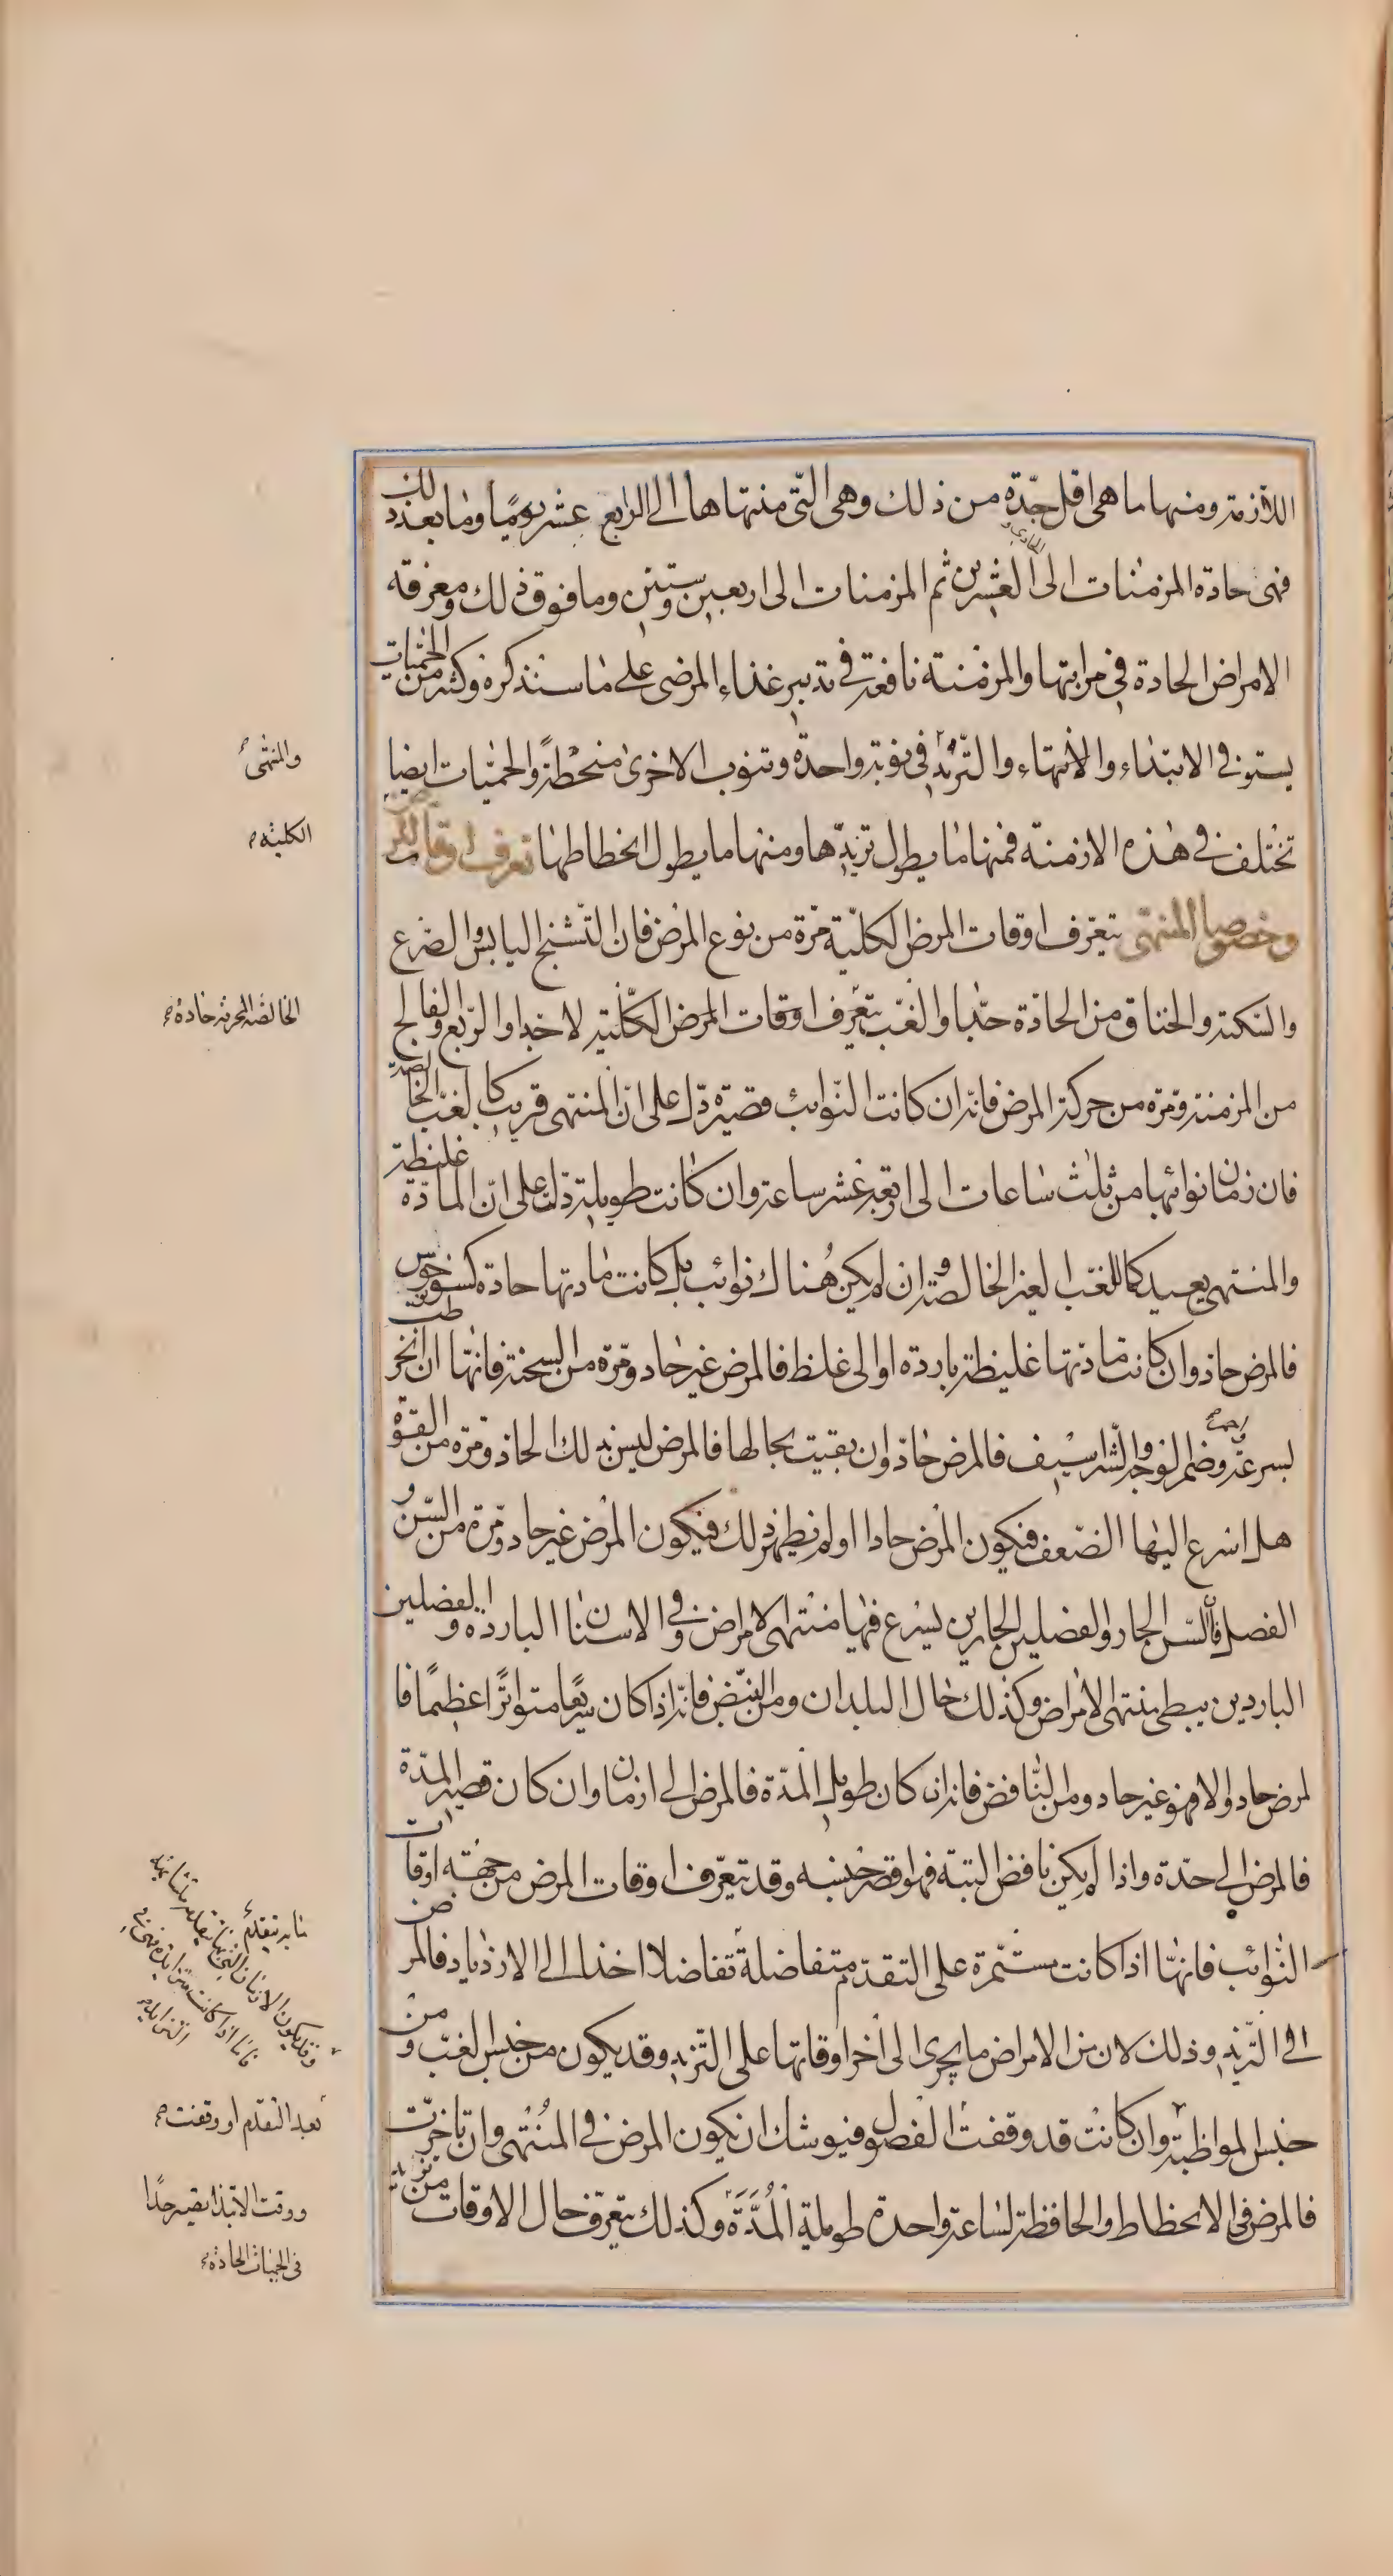 اللازمة ومنها ما هى اقل حدّة من ذلك وهى التى منتهاها الى الرابع عشر يومًا وما بعد ذلك
فهى حادة المزمنات الى العشرين ثم المزمنات الى اربعين وستين وما فوق ذلك ومعرفة
الامراض الحادة فى مراتبها والمزمنة نافعة فى تدبير غذاء المرضى على ما سنذكره وكثير من الحميات
يستوفى الابتداء والانتهاء والتزيد فى نوبة واحدة وتنوب الاخرى منحطة والحميات ايضا
تختلف فى هذه الازمنة فمنها ما يطول تزيدها ومنها ما يطول انحطاطها تعرف اوقات المرض
وخصوصا المنتهى يتعرف اوقات المرض الكلية مرة من نوع المرض فان التشنج اليابس والصرع
والسكتة والخناق من الحادة جدا والغب يتعرف اوقات المرض الكلية لاخدا والربع والفالج
من المزمنة ومرة من حركة المرض فانه ان كانت النوائب قصيرة دل على ان المنتهى قريب كالغب الخالصة
فان زمان نوائبها من ثلث ساعات الى اربعة عشر ساعة وان كانت طويلة دلت على ان المادة غليظة
والمنتهى بعيد كما للغب الغير الخالصة وان لم يكن هناك نوائب بل كانت مادتها حادة كسونوخوس
فالمرض حاد وان كانت مادتها غليظة باردة او الى غلظ فالمرض غير حاد ومرة من السحنة فانها ان انخرطت
بسرعة وضمر الوجه والشراسيف فالمرض حاد وان بقيت بحالها فالمرض ليس بذلك الحاد ومرة من القوة
هل اسرع اليها الضعف فيكون المرض حادا او لم يظهر ذلك فيكون المرض غير حاد ومرة من السن و
الفصل فالسن الحار والفصلين الحارين يسرع فيها منتهى الامراض وفى الاسنان الباردة والفصلين
الباردين يبطى منتهى الامراض وكذلك حال البلدان ومن النبض فانه اذا كان سريعا متواترًا عظيمًا فا
لمرض حاد والا فهو غير حاد ومن النافض فانه ان كان طويل المدة فالمرض الى ازمان وان كان قصير المدة
فالمرض الى حدة واذا لم يكن نافض البتة فهو اقصر جنسه وقد يتعرف اوقات المرض من جهة اوقات
النوائب فانها اذا كانت مستمرة على التقدم متفاضلة تفاضلا اخذا الى الازدياد فالمرض
الى التزيد وذلك لان من الامراض ما يجرى الى آخر اوقاتها على التزيد وقد يكون من جنس الغب ومن
جنس المواظبة وان كانت قد وقفت الفضول فيوشك ان يكون المرض فى المنتهى وان تاخرت
فالمرض فى الانحطاط والحافظة لساعة واحدة طويلة المدة وكذلك يتعرف حال الاوقات من تزيد
والمنتهى
الكلية
الخالصة المحرقة حادة
ما به يتقدم
وقد يكون الازمان التى بها
فاما اذا كانت متزايدة فهى فى
التزايد
بعد التقدم او وقفت
ووقت الابتدا يقصر جدًا
فى الحميات الحادة